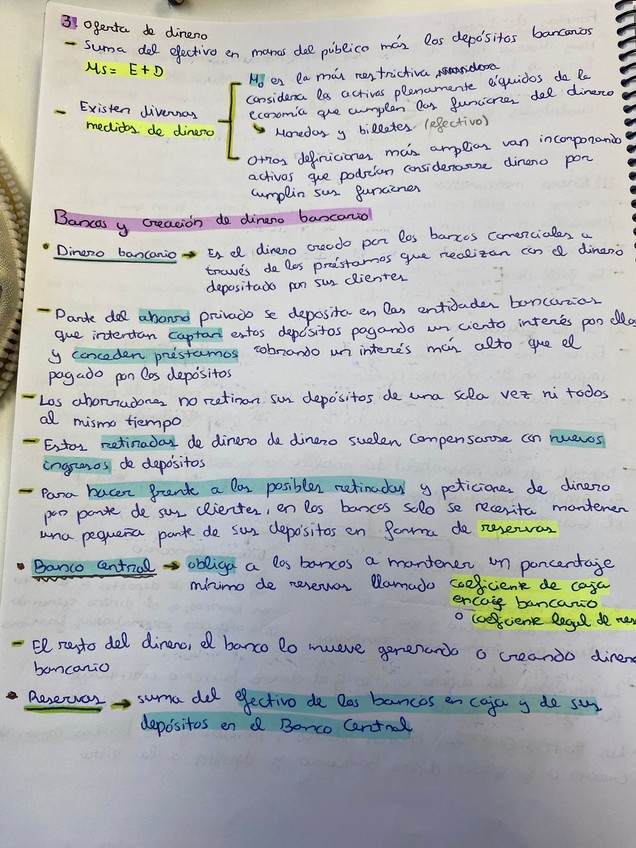 3. Oferta de dinero
- Suma del efectivo en manos del público más los depósitos bancarios
Ms = E + D
- Existen diversas
medidas de dinero
M0 es la más restrictiva
considera los activos plenamente líquidos de la
economía que cumplen las funciones del dinero
↳ Monedas y billetes (efectivo)
Otras definiciones más amplias van incorporando
activos que podrían considerarse dinero por
cumplir sus funciones
Bancos y creación de dinero bancario
• Dinero bancario → Es el dinero creado por los bancos comerciales a
través de los préstamos que realizan con el dinero
depositado por sus clientes
- Parte del ahorro privado se deposita en las entidades bancarias
que intentan captar estos depósitos pagando un cierto interés por ello
y conceden préstamos cobrando un interés más alto que el
pagado por los depósitos
- Los ahorradores no retiran sus depósitos de una sola vez ni todos
al mismo tiempo
- Estas retiradas de dinero de dinero suelen compensarse con nuevos
ingresos de depósitos
- Para hacer frente a las posibles retiradas y peticiones de dinero
por parte de sus clientes, en los bancos solo se necesita mantener
una pequeña parte de sus depósitos en forma de reservas
• Banco Central → obliga a los bancos a mantener un porcentaje
mínimo de reservas llamado coeficiente de caja
encaje bancario
o coeficiente legal de res
- El resto del dinero, el banco lo mueve generando o creando dinero
bancario
• Reservas → suma del efectivo de los bancos en caja y de sus
depósitos en el Banco Central